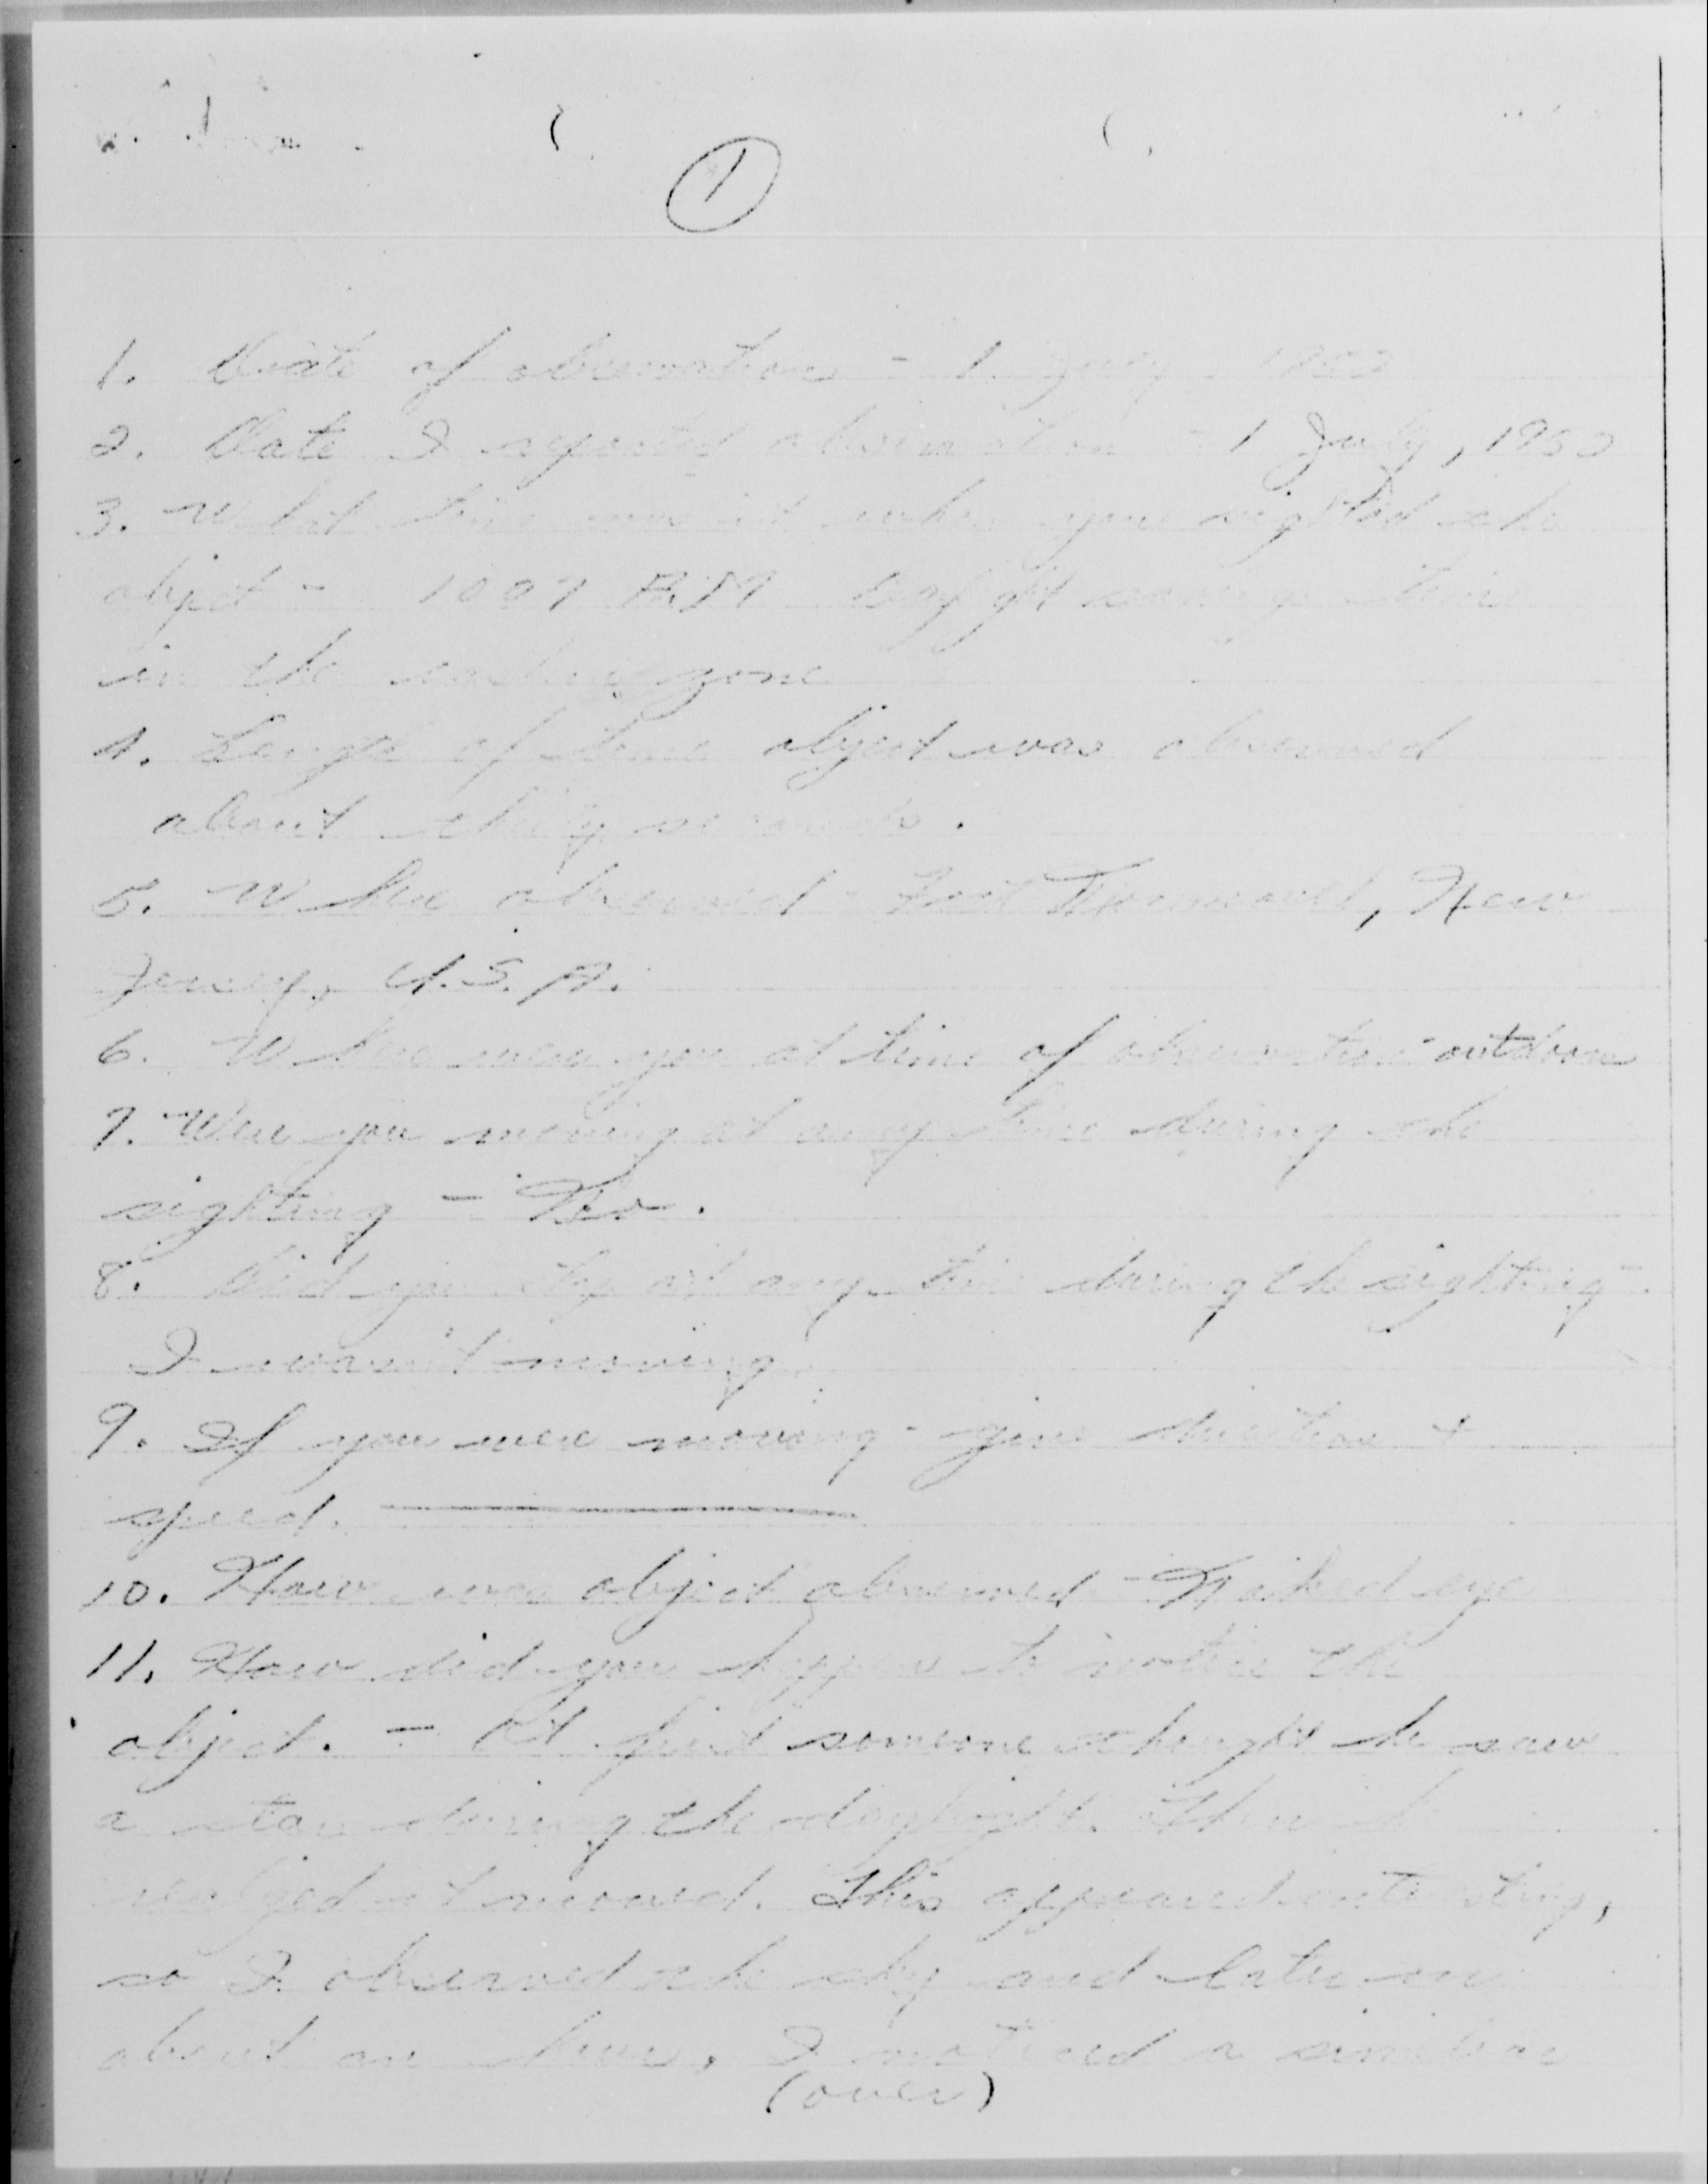 1
1. Date of observation - 1 July 1952
2. Date I reported observation - 1 July, 1952
3. What time was it when you sighted the
object - Daylight saving time
in the zone
4. Length of time object was observed
about thirty seconds.
5. Where observed - Fort Monmouth, New
Jersey, U.S.A.
6. Where were you at time of observation - outdoors
7. Were you moving at any time during the
sighting - No.
8. Did you stop at any time during the sighting -
I wasn't moving
9. If you were moving - give direction +
speed.
10. How was object observed - Naked eye
11. How did you happen to notice the
object. - At first someone thought he saw
a star during the daylight. Then
realized it moved. This appeared interesting,
so I observed the sky and later on
about an hour, I noticed a similar
(over)